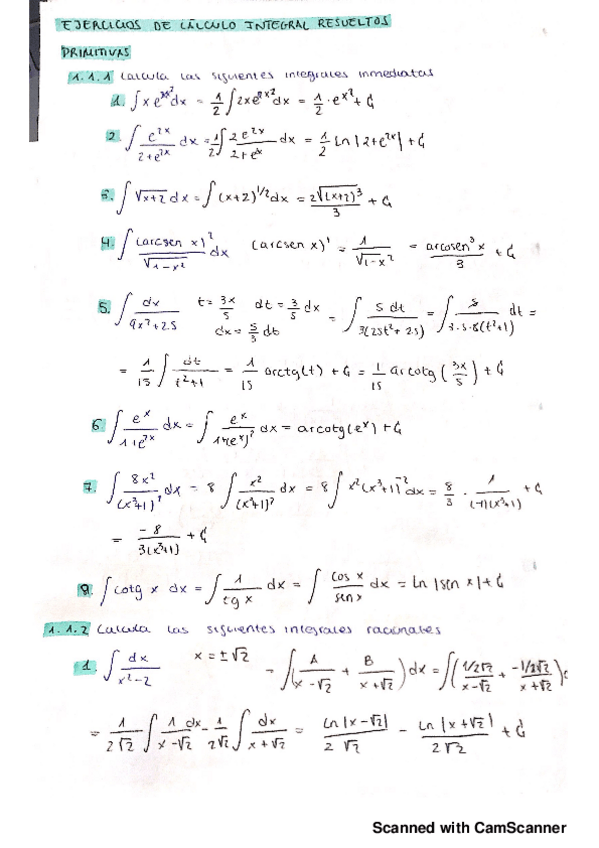 EJERCICIOS DE CÁLCULO INTEGRAL RESUELTOS
PRIMITIVAS
1.1.1 Calcula las siguientes integrales inmediatas
1. ∫ x e^x² dx = 1/2 ∫ 2x e^x² dx = 1/2 · e^x² + C
2. ∫ e^2x/(2+e^2x) dx = 1/2 ∫ 2e^2x/(2+e^x) dx = 1/2 Ln |2+e^2x| + C
3. ∫ √(x+2) dx = ∫ (x+2)^1/2 dx = 2√(x+2)³/3 + C
4. ∫ (arcsen x)²/√(1-x²) dx (arcsen x)' = 1/√(1-x²) = arcosen³x/3 + C
5. ∫ dx/(9x²+25) t = 3x/5 dt = 3/5 dx dx = 5/3 dt = ∫ 5 dt/3(25t²+25) = ∫ 5/(3·5·5(t²+1)) dt =
= 1/15 ∫ dt/(t²+1) = 1/15 arctg(t) + C = 1/15 arcotg(3x/5) + C
6. ∫ e^x/(1+e^2x) dx = ∫ e^x/(1+(e^x)²) dx = arcotg(e^x) + C
7. ∫ 8x²/(x³+1)² dx = 8 ∫ x²/(x³+1)² dx = 8 ∫ x²(x³+1)^-2 dx = 8/3 · 1/((-1)(x³+1)) + C
= -8/(3(x³+1)) + C
8. ∫ cotg x dx = ∫ 1/tg x dx = ∫ cos x/sen x dx = Ln |sen x| + C
1.1.2 Calcula las siguientes integrales racionales
1. ∫ dx/(x²-2) x = ±√2 = ∫ (A/(x-√2) + B/(x+√2)) dx = ∫ ((1/2√2)/(x-√2) + (-1/2√2)/(x+√2))
= 1/2√2 ∫ 1/(x-√2) dx - 1/2√2 ∫ dx/(x+√2) = Ln |x-√2|/2√2 - Ln |x+√2|/2√2 + C
Scanned with CamScanner